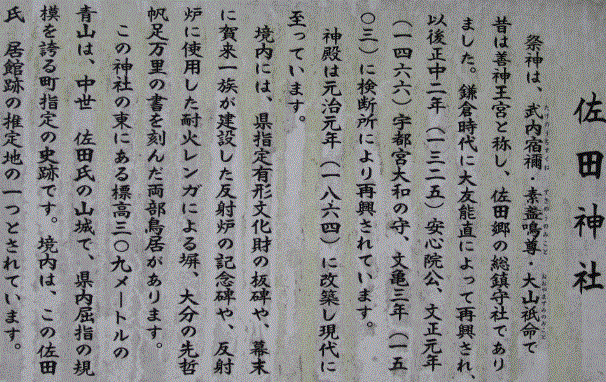 佐田神社
祭神は、武内宿禰・素盞嗚尊・大山祇命で
昔は善神王宮と称し、佐田郷の総鎮守社であり
ました。鎌倉時代に大友能直によって再興され、
以後正中二年（一三二五）安心院公、文正元年
（一四六六）宇都宮大和の守、文亀三年（一五
〇三）に検断所により再興されています。
神殿は元治元年（一八六四）に改築し現代に
至っています。
境内には、県指定有形文化財の板碑や、幕末
に賀来一族が建設した反射炉の記念碑や、反射
炉に使用した耐火レンガによる塀、大分の先哲
帆足万里の書を刻んだ両部鳥居があります。
この神社の東にある標高三〇九メートルの
青山は、中世　佐田氏の山城で、県内屈指の規
模を誇る町指定の史跡です。境内は、この佐田
氏　居館跡の推定地の一つとされています。